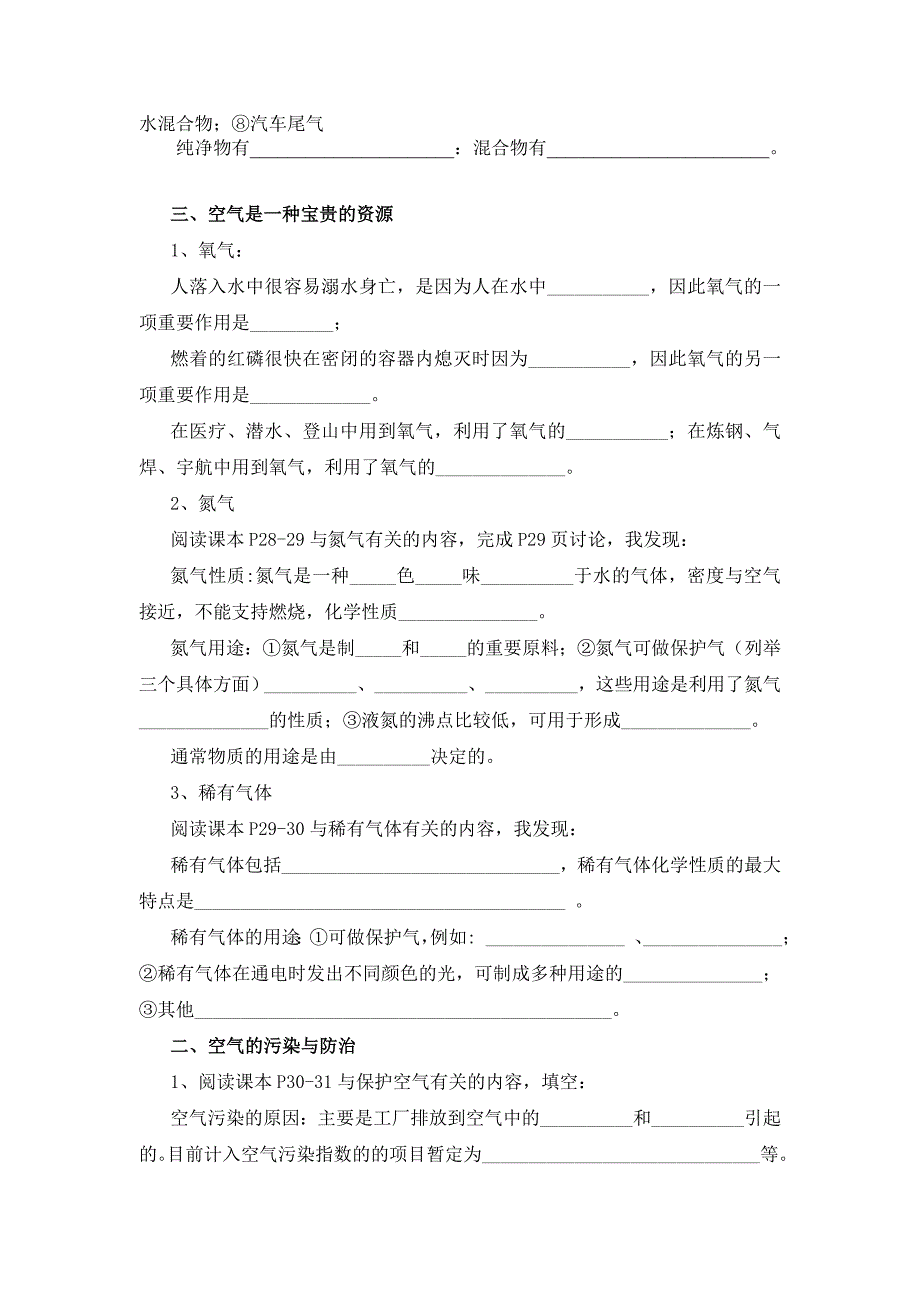 水混合物；⑧汽车尾气
纯净物有______________________：混合物有________________________。
三、空气是一种宝贵的资源
1、氧气：
人落入水中很容易溺水身亡，是因为人在水中___________，因此氧气的一
项重要作用是_________；
燃着的红磷很快在密闭的容器内熄灭时因为___________，因此氧气的另一
项重要作用是_____________。
在医疗、潜水、登山中用到氧气，利用了氧气的___________；在炼钢、气
焊、宇航中用到氧气，利用了氧气的______________。
2、氮气
阅读课本P28-29与氮气有关的内容，完成P29页讨论，我发现：
氮气性质:氮气是一种_____色_____味__________于水的气体，密度与空气
接近，不能支持燃烧，化学性质_______________。
氮气用途：①氮气是制_____和_____的重要原料；②氮气可做保护气（列举
三个具体方面）__________、__________、__________，这些用途是利用了氮气
______________的性质；③液氮的沸点比较低，可用于形成______________。
通常物质的用途是由__________决定的。
3、稀有气体
阅读课本P29-30与稀有气体有关的内容，我发现：
稀有气体包括______________________________，稀有气体化学性质的最大
特点是________________________________________ 。
稀有气体的用途：①可做保护气,例如: _______________ 、_______________；
②稀有气体在通电时发出不同颜色的光，可制成多种用途的_______________；
③其他_____________________________________________。
二、空气的污染与防治
1、阅读课本P30-31与保护空气有关的内容，填空：
空气污染的原因：主要是工厂排放到空气中的__________和__________引起
的。目前计入空气污染指数的的项目暂定为______________________________等。